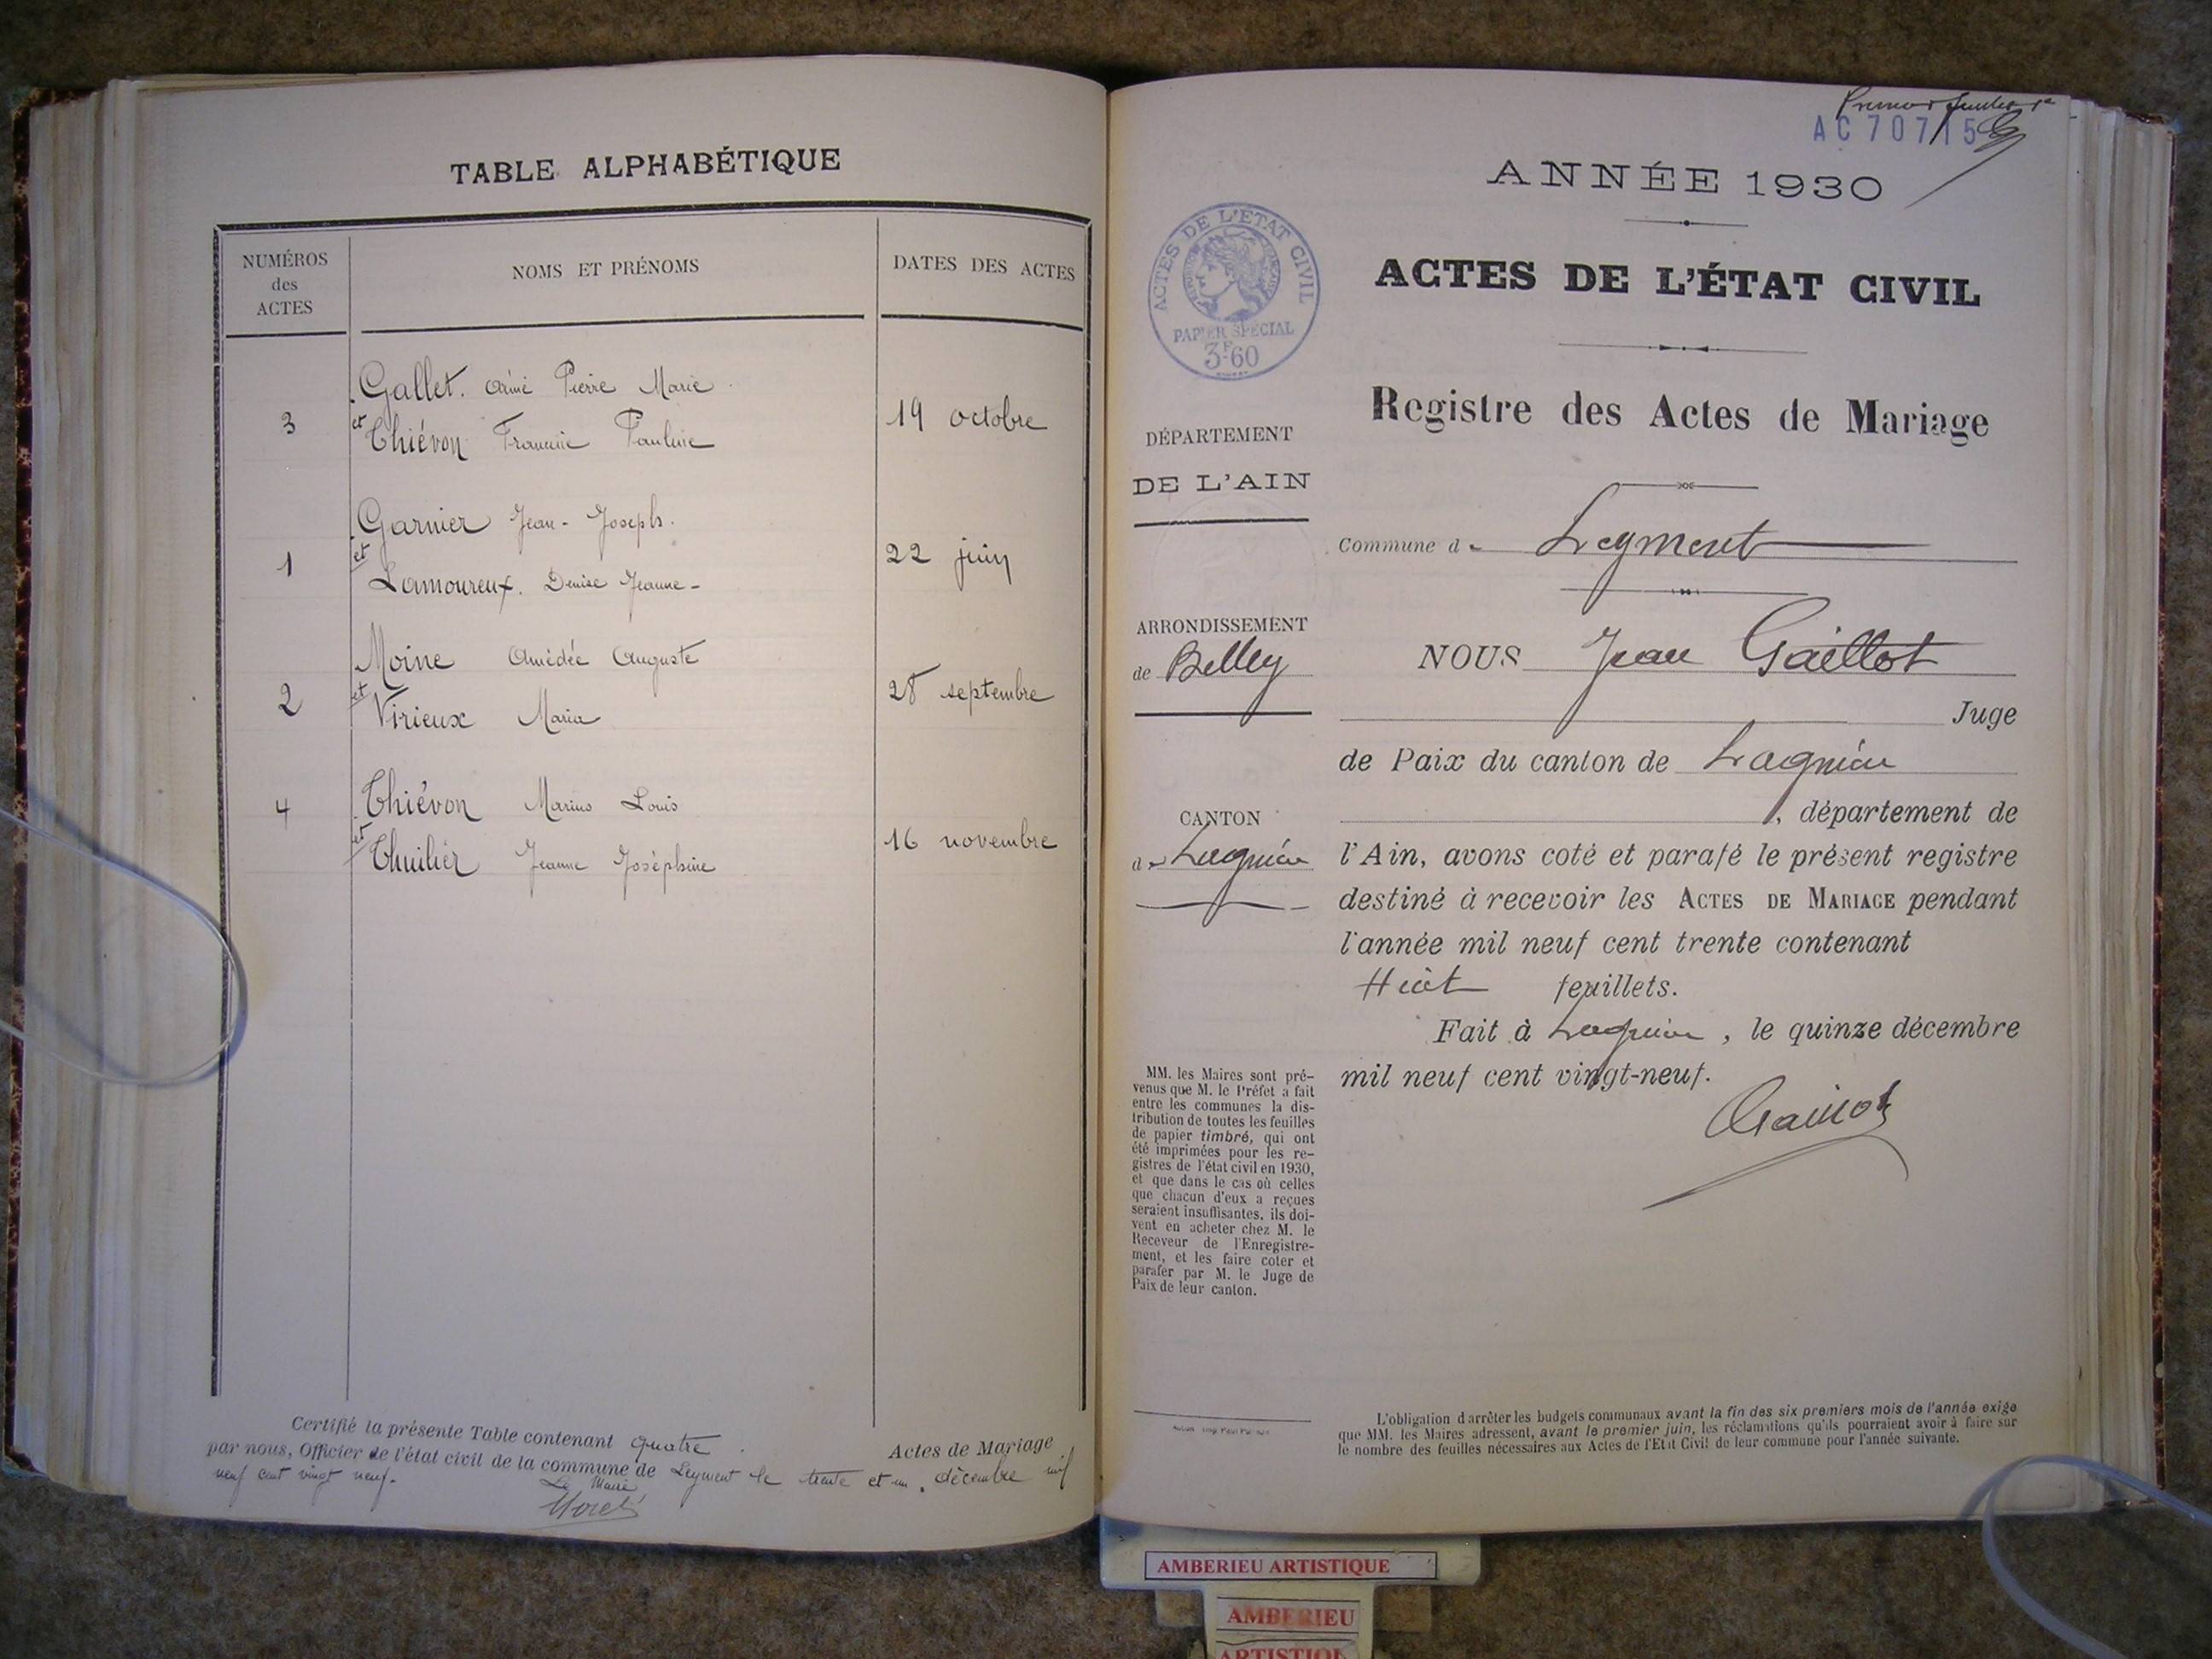 TABLE ALPHABÉTIQUE
NUMÉROS
des
ACTES
NOMS ET PRÉNOMS
DATES DES ACTES
Gallet. Aimé Pierre Marie
3
et Thiévon Francine Pauline
19 octobre
Garnier Jean-Joseph.
1
et
Lamoureux. Denise Jeanne-
22 juin
Moine Amédée Auguste
2
et
Virieux Maria
28 septembre
4
Thiévon Marius Louis
et
Thuilier Jeanne Joséphine
16 novembre
Certifié la présente Table contenant quatre Actes de Mariage
par nous, Officier de l'état civil de la commune de Leyment le trente et un décembre mil
neuf cent vingt neuf.
Le Maire
Premier feuillet
AC 707/15
ANNÉE 1930
ACTES DE L'ÉTAT CIVIL
PAPIER SPÉCIAL
3F60
ACTES DE L'ÉTAT CIVIL
Registre des Actes de Mariage
DÉPARTEMENT
DE L'AIN
Commune de Leyment
ARRONDISSEMENT
de Belley
NOUS Jean Gaillot
Juge
de Paix du canton de Lagnieu
, département de
CANTON
de Lagnieu
l'Ain, avons coté et parafé le présent registre
destiné à recevoir les ACTES DE MARIAGE pendant
l'année mil neuf cent trente contenant
Huit feuillets.
Fait à Lagnieu, le quinze décembre
mil neuf cent vingt-neuf.
Gaillot
MM. les Maires sont pré-
venus que M. le Préfet a fait
entre les communes la dis-
tribution de toutes les feuilles
de papier timbré, qui ont
été imprimées pour les re-
gistres de l'état civil en 1930,
et que dans le cas où celles
que chacun d'eux a reçues
seraient insuffisantes, ils doi-
vent en acheter chez M. le
Receveur de l'Enregistre-
ment, et les faire coter et
parafer par M. le Juge de
Paix de leur canton.
L'obligation d'arrêter les budgets communaux avant la fin des six premiers mois de l'année exige
que MM. les Maires adressent, avant le premier juin, les réclamations qu'ils pourraient avoir à faire sur
le nombre des feuilles nécessaires aux Actes de l'Etat Civil de leur commune pour l'année suivante.
AMBERIEU ARTISTIQUE
AMBERIEU
ARTISTIQU